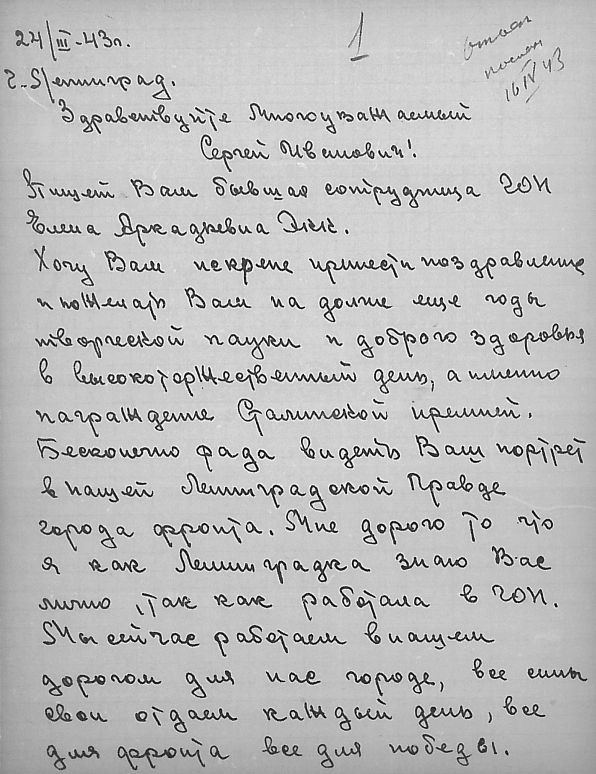 24/III-43г.
1
Ответ
послан
16 IV 43
г. Ленинград.
Здравствуйте Многоуважаемый
Сергей Иванович!
Пишет Вам бывшая сотрудница ГОИ
Елена Аркадьевна Экк.
Хочу Вам искрене принести поздравление
и пожелать Вам на долге еще годы
творческой науки и доброго здоровья
в высокоторжественный день, а именно
награждение Сталинской премией.
Бесконечно рада видеть Ваш портрет
в нашей Ленинградской Правде
города фронта. Мне дорого то что
я как Ленинградка знаю Вас
лично, так как работала в ГОИ.
Мы сейчас работаем в нашем
дорогом для нас городе, все силы
свои отдаем каждый день, все
для фронта все для победы.